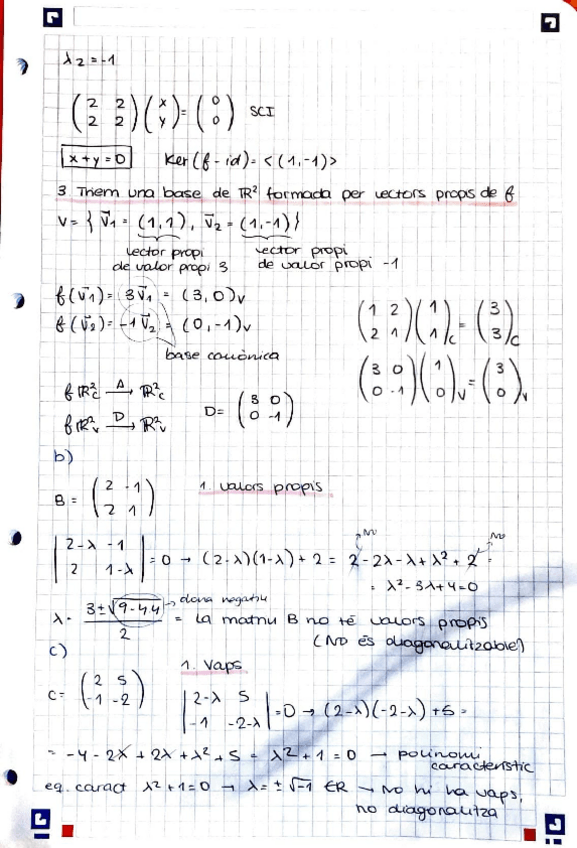 λ2 = -1
(2 2
2 2) (x
y) = (0
0) SCI
x+y=0 Ker(f-id) = <(1,-1)>
3 Triem una base de R² formada per vectors propis de f
V = { v⃗1 = (1,1), v⃗2 = (1,-1)}
vector propi vector propi
de valor propi 3 de valor propi -1
f(v⃗1) = 3v⃗1 = (3,0)v
f(v⃗2) = -1v⃗2 = (0,-1)v
base canònica
(1 2
2 1) (1
1)c = (3
3)c
(3 0
0 -1) (1
0)v = (3
0)v
f R²c A→ R²c
f R²v D→ R²v
D = (3 0
0 -1)
b)
B = (2 -1
2 1) 1. valors propis
|2-λ -1
2 1-λ| = 0 → (2-λ)(1-λ) + 2 = 2 - 2λ - λ + λ² + 2 =
= λ² - 3λ + 4 = 0
λ = 3 ± √9-4·4 / 2 → dona negatiu = La matriu B no té valors propis
(NO és diagonalitzable)
c)
1. Vaps
C = (2 5
-1 -2) |2-λ 5
-1 -2-λ| = 0 → (2-λ)(-2-λ) + 5 =
= -4 - 2λ + 2λ + λ² + 5 = λ² + 1 = 0 → polinomi
característic
eq. caract λ² + 1 = 0 → λ = ± √-1 ∉ R → No hi ha vaps,
no diagonalitza